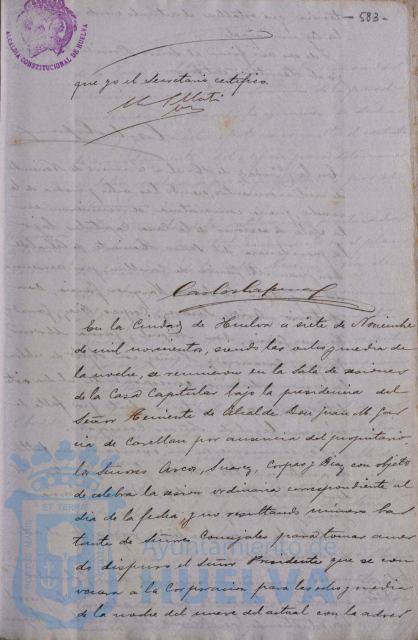 ALCALDIA CONSTITUCIONAL DE HUELVA
- 583 -
que yo el Secretario certifico.
En la Ciudad de Huelva a siete de Noviembre
de mil novecientos, siendo las ocho y media de
la noche, se reunieron en la Sala de sesiones
de la Casa Capitular bajo la presidencia del
Señor Teniente de Alcalde Don Juan M. Gar
cia de Corellan por ausencia del propietario
los Señores Arcos, Suarez, Corpas y Diaz con objeto
de celebrar la sesion ordinaria correspondiente al
dia de la fecha, y no resultando número bas
tante de Señores Concejales para tomar acuer
do dispuso el Señor Presidente que se con
vocara a la Corporacion para las ocho y media
de la noche del nueve del actual con la adver
Ayuntamiento de
HUELVA